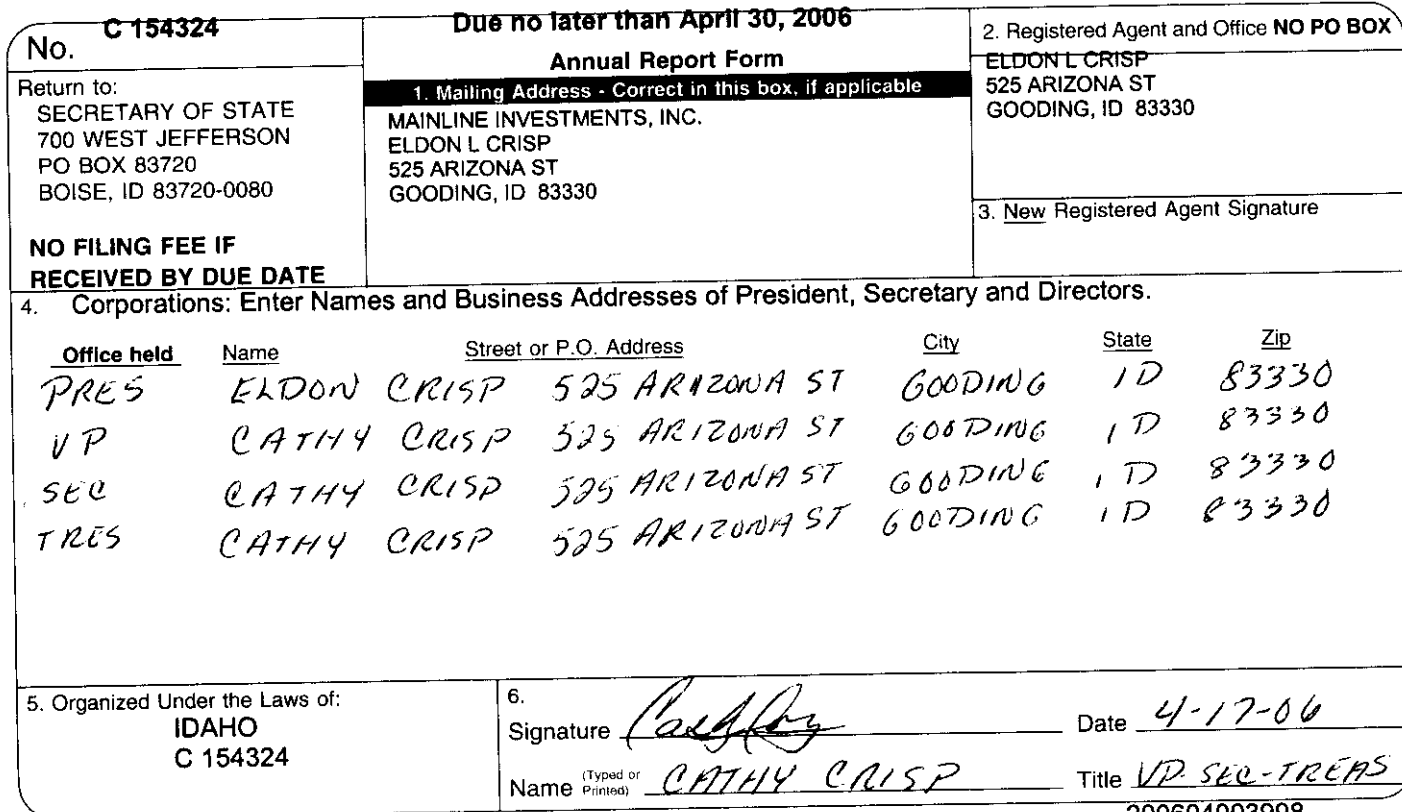 No. C 154324
Return to:
SECRETARY OF STATE
700 WEST JEFFERSON
PO BOX 83720
BOISE, ID 83720-0080
NO FILING FEE IF
RECEIVED BY DUE DATE
Due no later than April 30, 2006
Annual Report Form
1. Mailing Address - Correct in this box, if applicable
MAINLINE INVESTMENTS, INC.
ELDON L CRISP
525 ARIZONA ST
GOODING, ID 83330
2. Registered Agent and Office NO PO BOX
ELDON L CRISP
525 ARIZONA ST
GOODING, ID 83330
3. New Registered Agent Signature
4. Corporations: Enter Names and Business Addresses of President, Secretary and Directors.
Office held Name Street or P.O. Address City State Zip
PRES ELDON CRISP 525 ARIZONA ST GOODING ID 83330
VP CATHY CRISP 525 ARIZONA ST GOODING ID 83330
SEC CATHY CRISP 525 ARIZONA ST GOODING ID 83330
TRES CATHY CRISP 525 ARIZONA ST GOODING ID 83330
5. Organized Under the Laws of:
IDAHO
C 154324
6.
Signature Date 4-17-06
Name (Typed or Printed) CATHY CRISP Title VP-SEC-TREAS